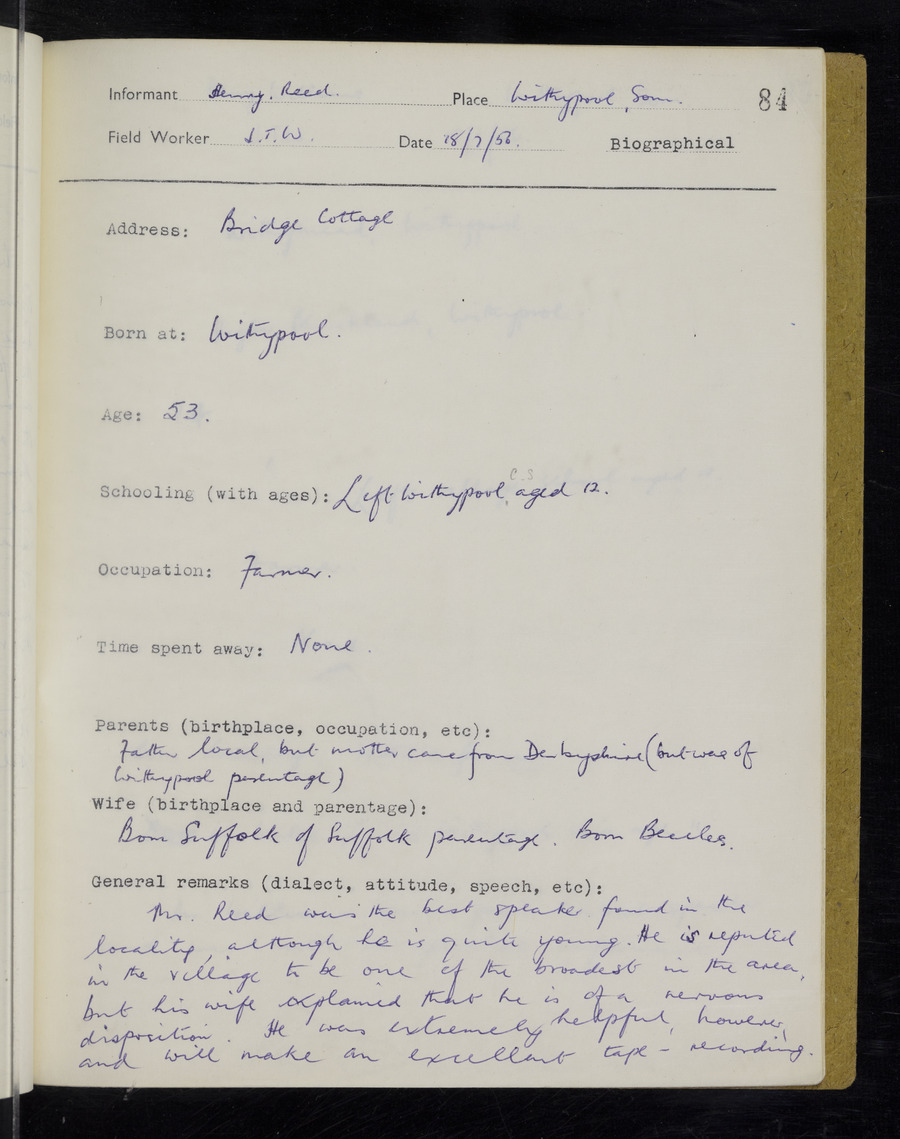 Informant Henry. Reed. Place Withypool, Som. 84
Field Worker J.T.W. Date 18/7/56. Biographical
Address: Bridge Cottage
Born at: Withypool.
Age: 53.
C.S
Schooling (with ages): Left Withypool, aged 12.
Occupation: Farmer.
Time spent away: None.
Parents (birthplace, occupation, etc):
Father local, but mother came from Derbyshire (but was of
Withypool parentage)
Wife (birthplace and parentage):
Born Suffolk of Suffolk parentage. Born Beccles.
General remarks (dialect, attitude, speech, etc):
Mr. Reed was the best speaker found in the
locality, although he is quite young. He is reputed
in the village to be one of the broadest in the area,
but his wife explained that he is of a nervous
disposition. He was extremely helpful, however,
and will make an excellent tape-recording.